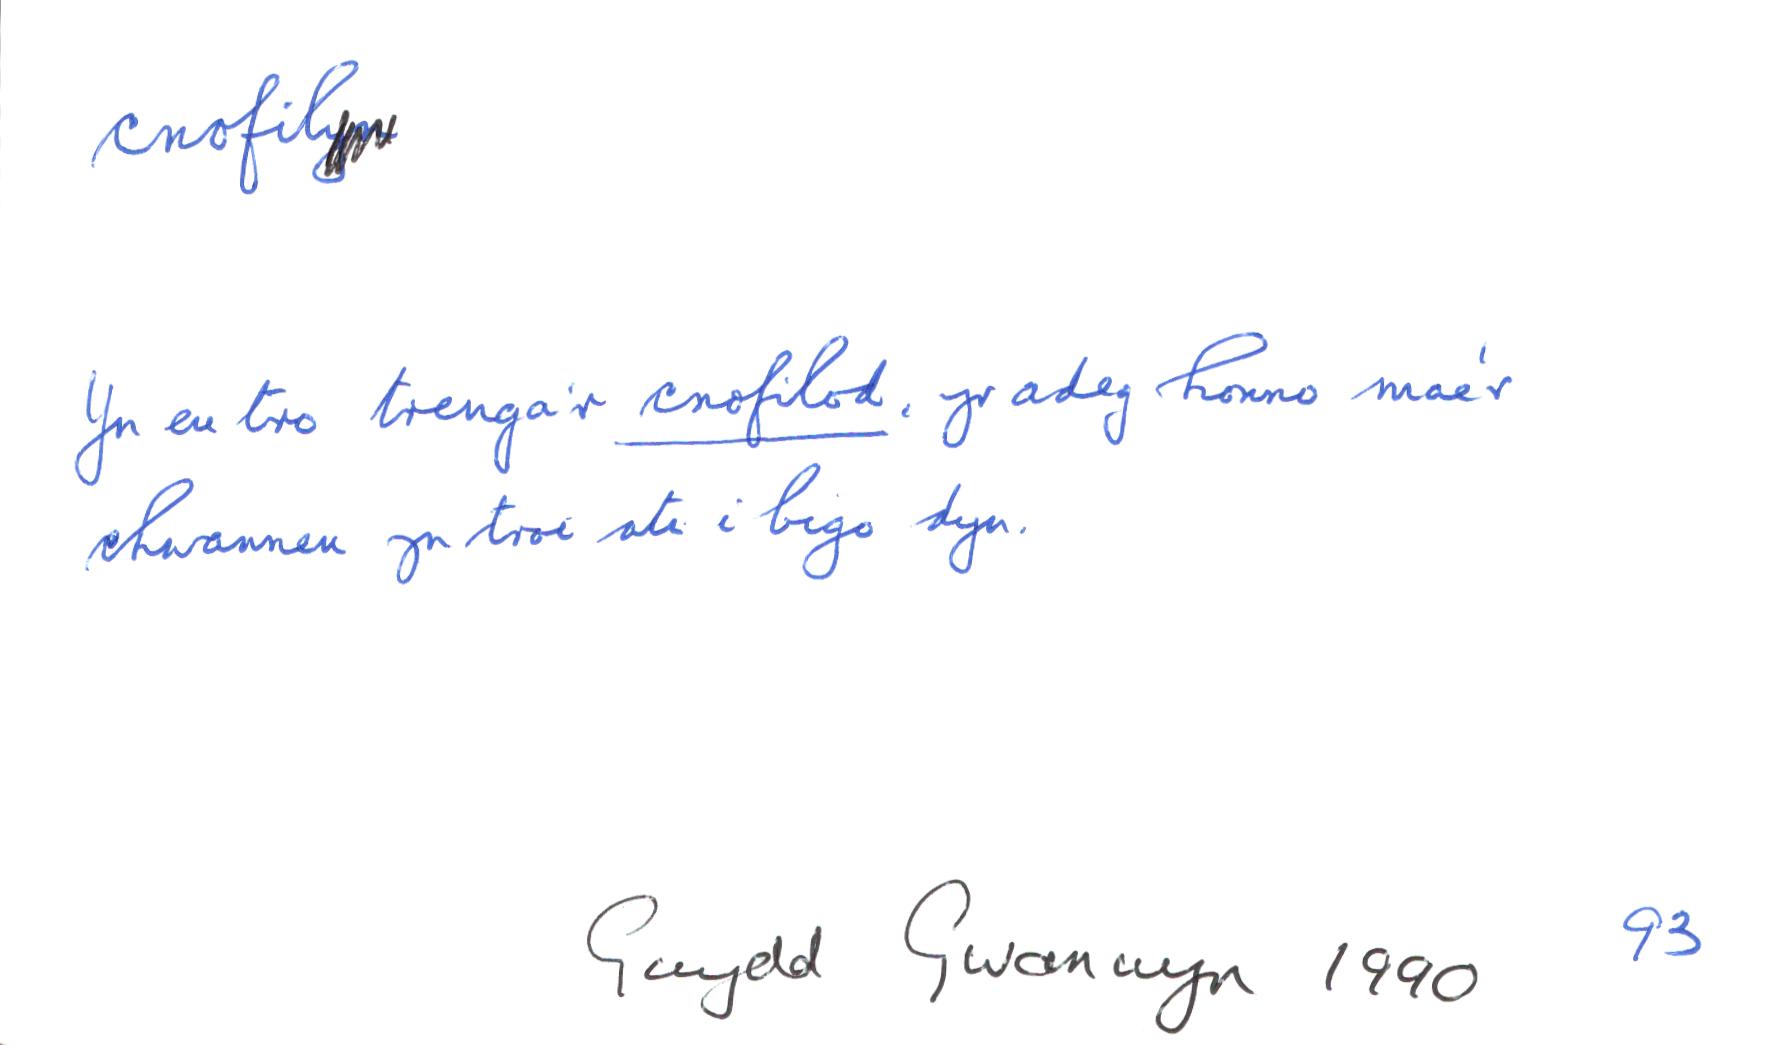 cnofil
Yn eu tro trenga'r cnofilod, yr adeg honno mae'r
chwannen yn troi ati i bigo dyn.
Gwydd Gwanwyn 1990 93